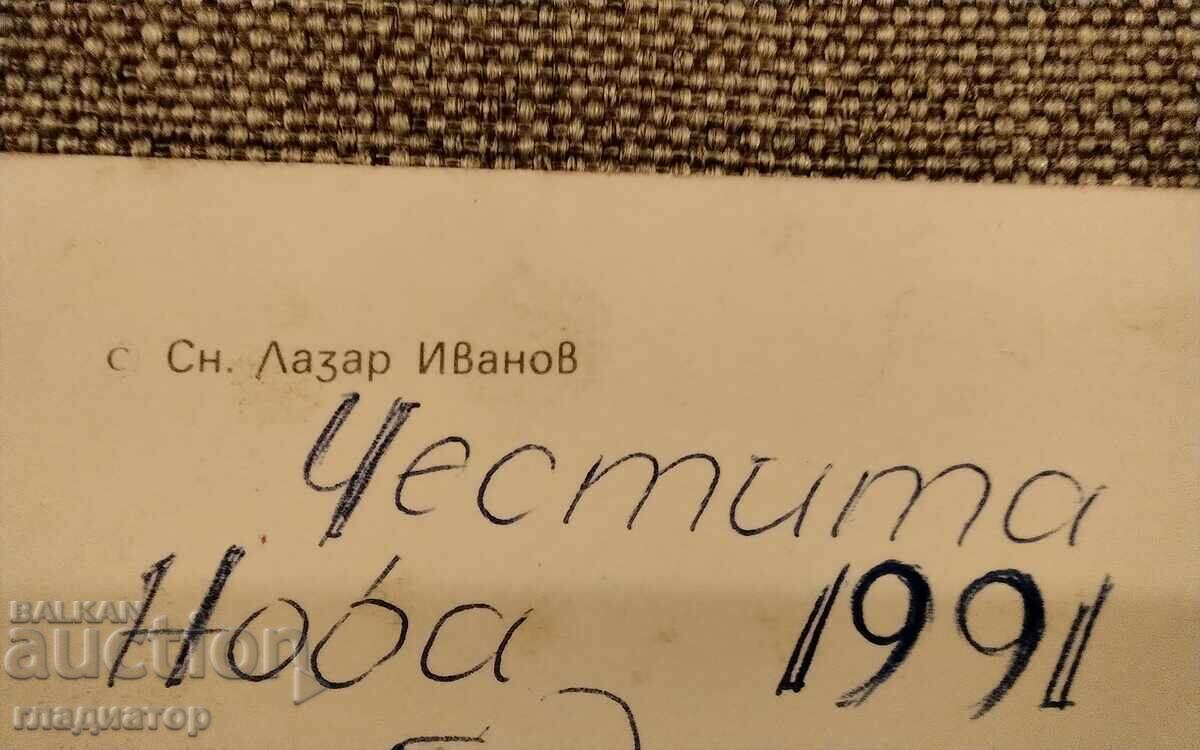 с Сн. Лазар Иванов
Честита
Нова 1991
BALKAN
auction
гладиатор